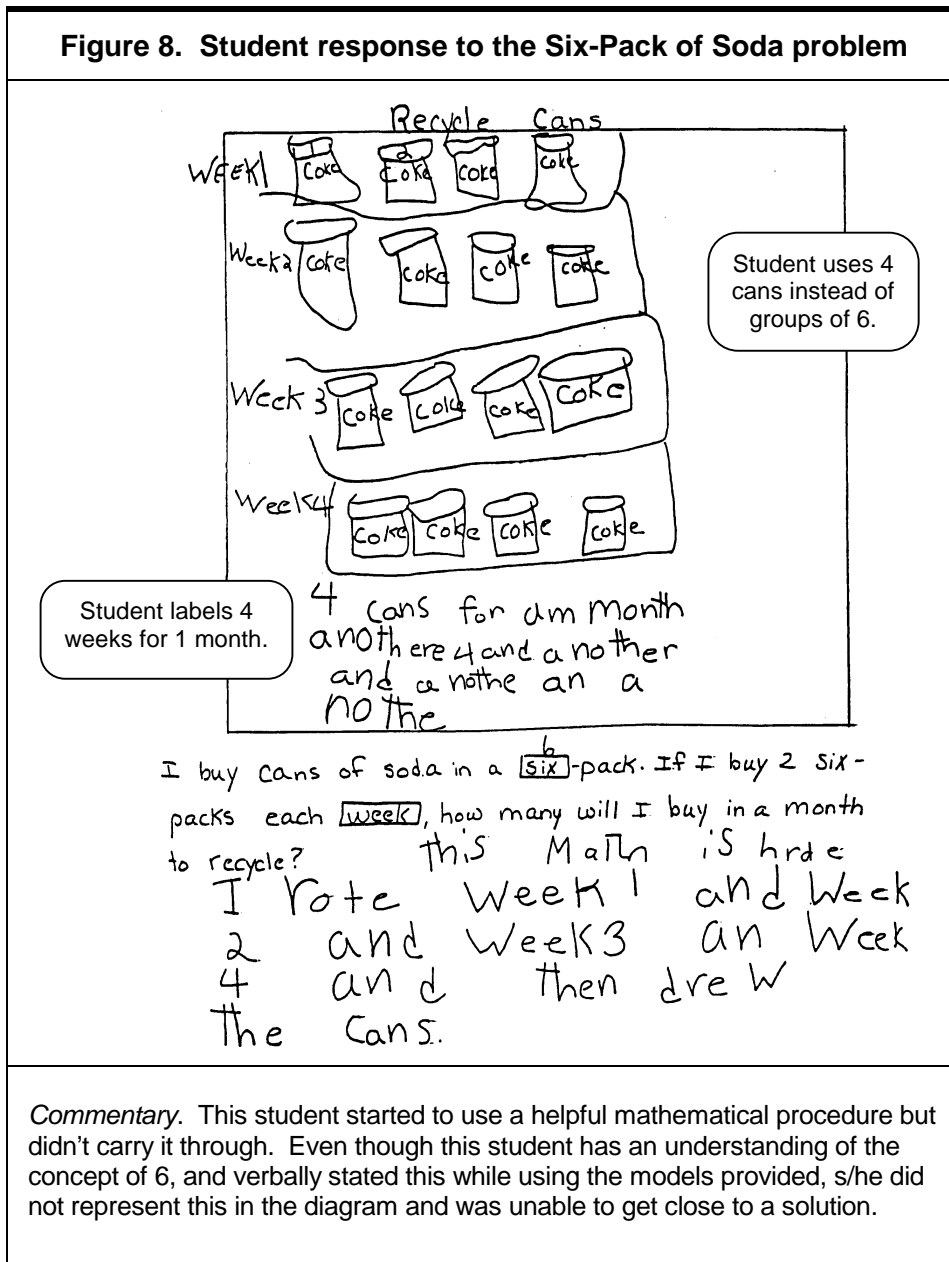 Figure 8. Student response to the Six-Pack of Soda problem
Recycle Cans
WEEK1 Coke 2 Coke Coke Coke
Week2 Coke Coke Coke Coke
Student uses 4
cans instead of
groups of 6.
Week 3 Coke Coke Coke Coke
Week4 Coke Coke Coke Coke
Student labels 4
weeks for 1 month.
4 cans for am month
anothere 4 and another
and a nothe an a
nothe
6
I buy cans of soda in a six-pack. If I buy 2 six-
packs each week, how many will I buy in a month
to recycle? this Math is hrde
I rote Week 1 and Week
2 and Week3 an Week
4 and then drew
the cans.
Commentary. This student started to use a helpful mathematical procedure but
didn't carry it through. Even though this student has an understanding of the
concept of 6, and verbally stated this while using the models provided, s/he did
not represent this in the diagram and was unable to get close to a solution.